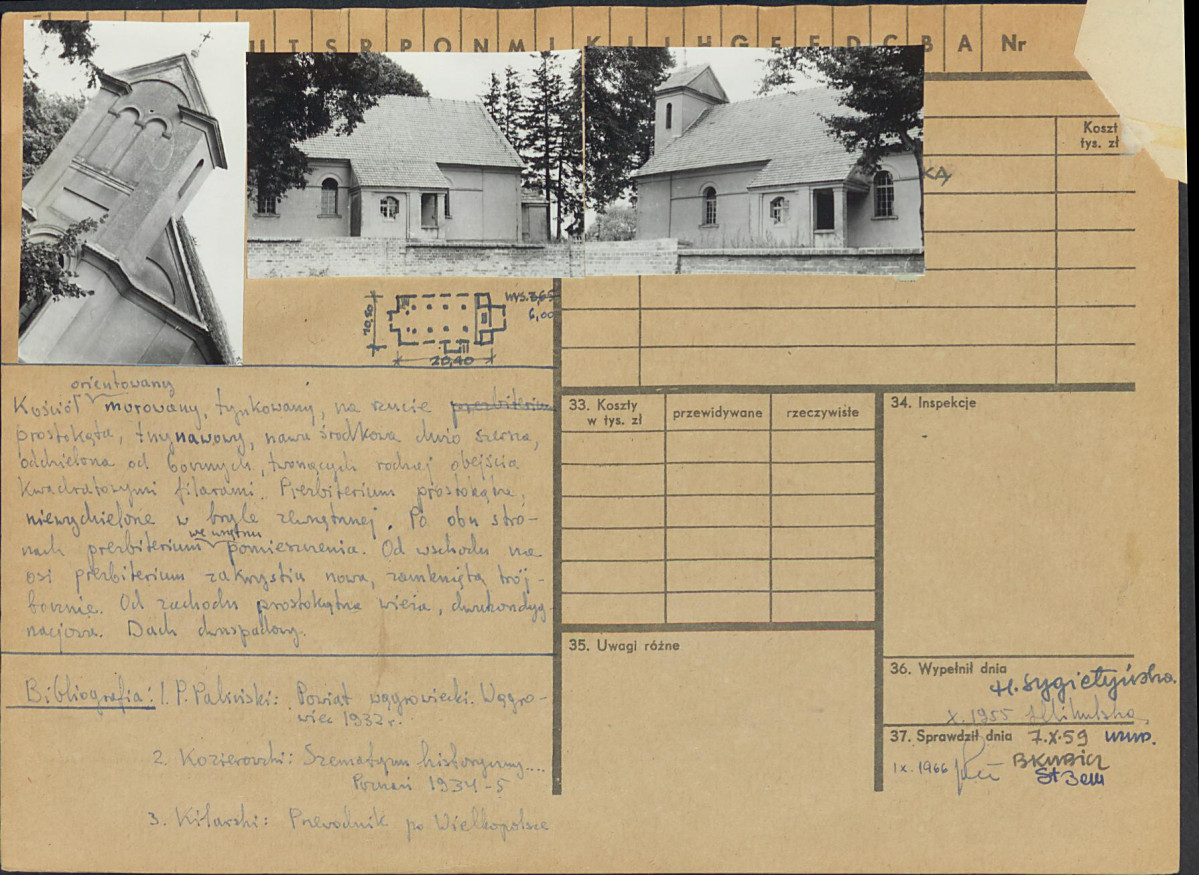 U T S R P O N M Ł K J I H G F E D C B A Nr
Koszt
tys. zł
KĄ
WYS. 3,65
6,00
10,80
20,40
orientowany
Kościół murowany, tynkowany, na rzucie prezbiterium
prostokąta, trzynawowy, nawa środkowa dwa szersza,
oddzielona od bocznych, tworzących rodzaj obejścia
kwadratowymi filarami. Prezbiterium prostokątne,
niewydzielone w bryle zewnętrznej. Po obu stro-
we wnętrzu
nach prezbiterium pomieszczenia. Od wschodu na
osi prezbiterium zakrystia nowa, zamknięta trój-
bocznie. Od zachodu prostokątna wieża, dwukondyg-
nacjowa. Dach dwuspadowy.
Bibliografia: 1. P. Paliński: Powiat wągrowiecki. Wągro-
wiec 1932 r.
2. Kozierowski: Szematyzm historyczny....
Poznań 1934-5
3. Kilarski: Przewodnik po Wielkopolsce
33. Koszty
w tys. zł
przewidywane
rzeczywiste
34. Inspekcje
35. Uwagi różne
36. Wypełnił dnia
H. Sygietyńska.
X. 1955
37. Sprawdził dnia 7.X.59
IX. 1966
B KUBICZ
St Bem